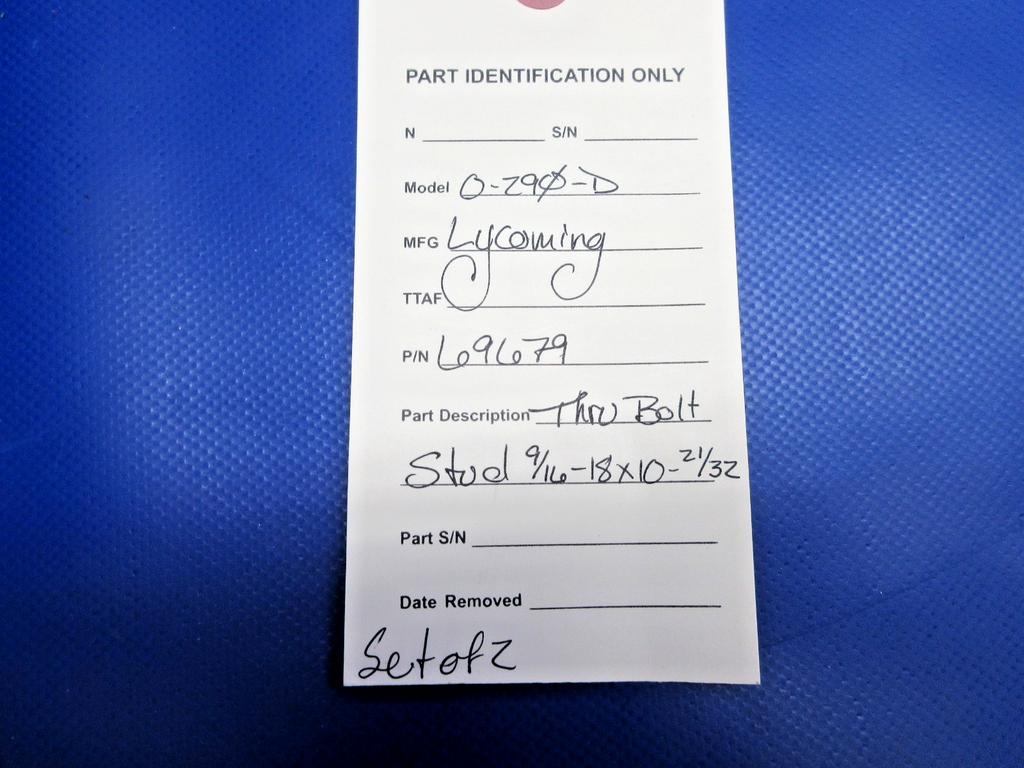 PART IDENTIFICATION ONLY
N S/N
Model O-290-D
MFG Lycoming
TTAF
P/N 69679
Part Description Thru Bolt
Stud 9/16-18x10-21/32
Part S/N
Date Removed
Set of 2